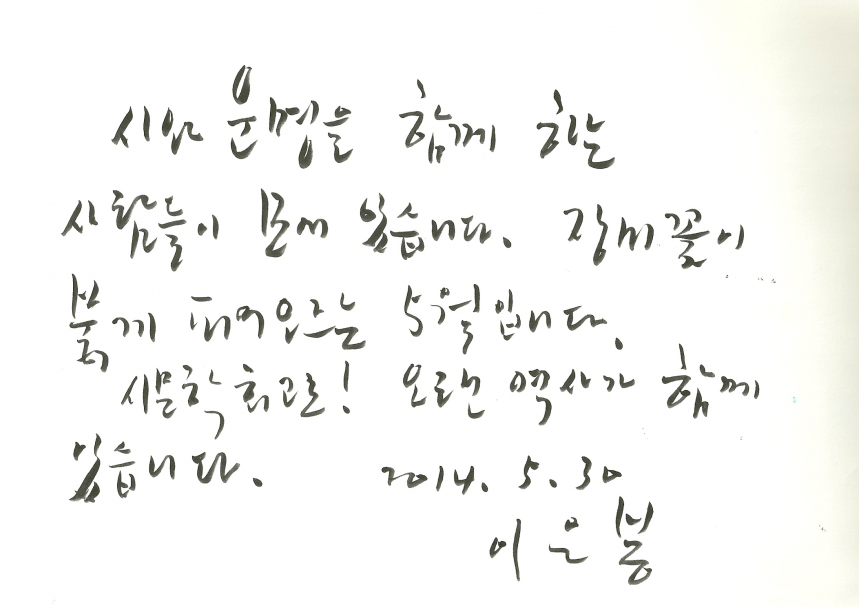 시와 운명을 함께 하는
사람들이 모여 있습니다. 장미꽃이
붉게 피어오르는 5월입니다.
시문학회고로! 오랜 역사가 함께
있습니다. 2014. 5. 30
이은봉